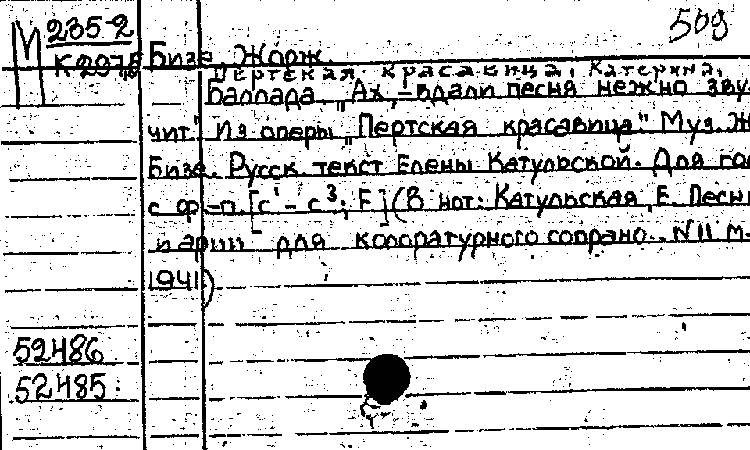 509
М 235-2
К 297,8 Бизе, Жорж.
Пертская красавица. Катерина.
Баллада. „Ах, вдали песня нежно зву-
чит". Из оперы „Пертская красавица." Муз. Ж.
Бизе. Русск. текст Елены Катульской. Для гол
с ф-п. [c¹ – c³; E] (В нот: Катульская, Е. Песни
и арии для колоратурного сопрано. N 11 М.
1941)
52486
52485